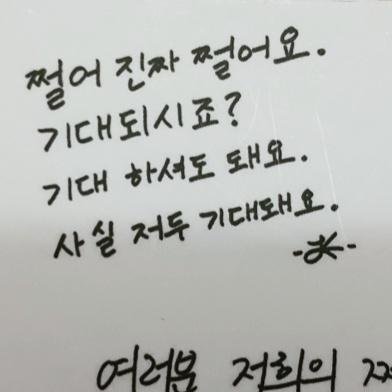 쩔어 진짜 쩔어요.
기대되시죠?
기대 하셔도 돼요.
사실 저두 기대돼요.
여러분 저희의